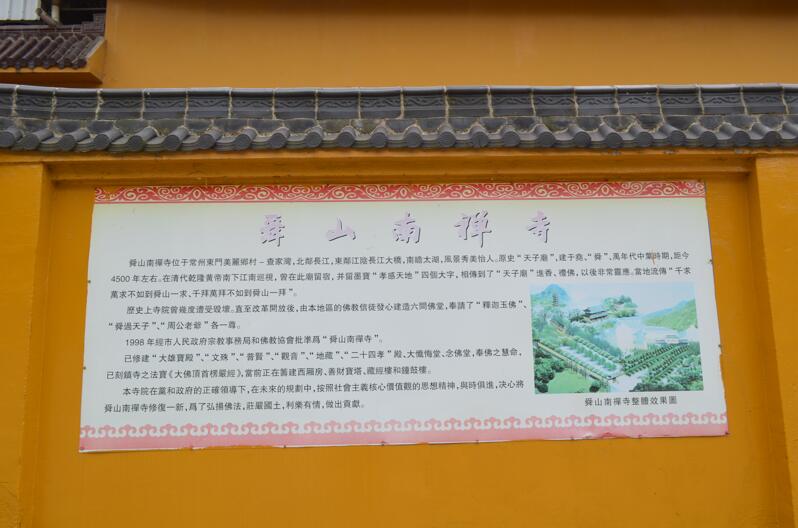 舜山南禪寺
舜山南禪寺位于常州東門美麗鄉村－查家灣，北鄰長江，東鄰江陰長江大橋，南瞻太湖，風景秀美怡人。原史“天子廟”，建于堯、“舜”、萬年代中葉時期，距今
4500年左右。在清代乾隆黄帝南下江南巡視，曾在此廟留宿，并留墨寶“孝感天地”四個大字，相傳到了“天子廟”進香、禮佛，以後非常靈應。當地流傳“千求
萬求不如到舜山一求、千拜萬拜不如到舜山一拜”。
歷史上寺院曾幾度遭受毁壞。直至改革開放後，由本地區的佛教信徒發心建造六間佛堂，奉請了“釋迦玉佛”、
“舜過天子”、“周公老爺”各一尊。
1998年經市人民政府宗教事務局和佛教協會批準爲“舜山南禪寺”。
已修建“大雄寶殿”、“文殊”、“普賢”、“觀音”、“地藏”、“二十四孝”殿、大懺悔堂、念佛堂，奉佛之慧命，
已刻鎮寺之法寶《大佛頂首楞嚴經》，當前正在籌建西厢房、善財寶塔、藏經樓和鐘鼓樓。
本寺院在黨和政府的正確領導下，在未來的規劃中，按照社會主義核心價值觀的思想精神，與時俱進，决心將
舜山南禪寺修復一新，爲了弘揚佛法，莊嚴國土，利樂有情，做出貢獻。
舜山南禪寺整體效果圖